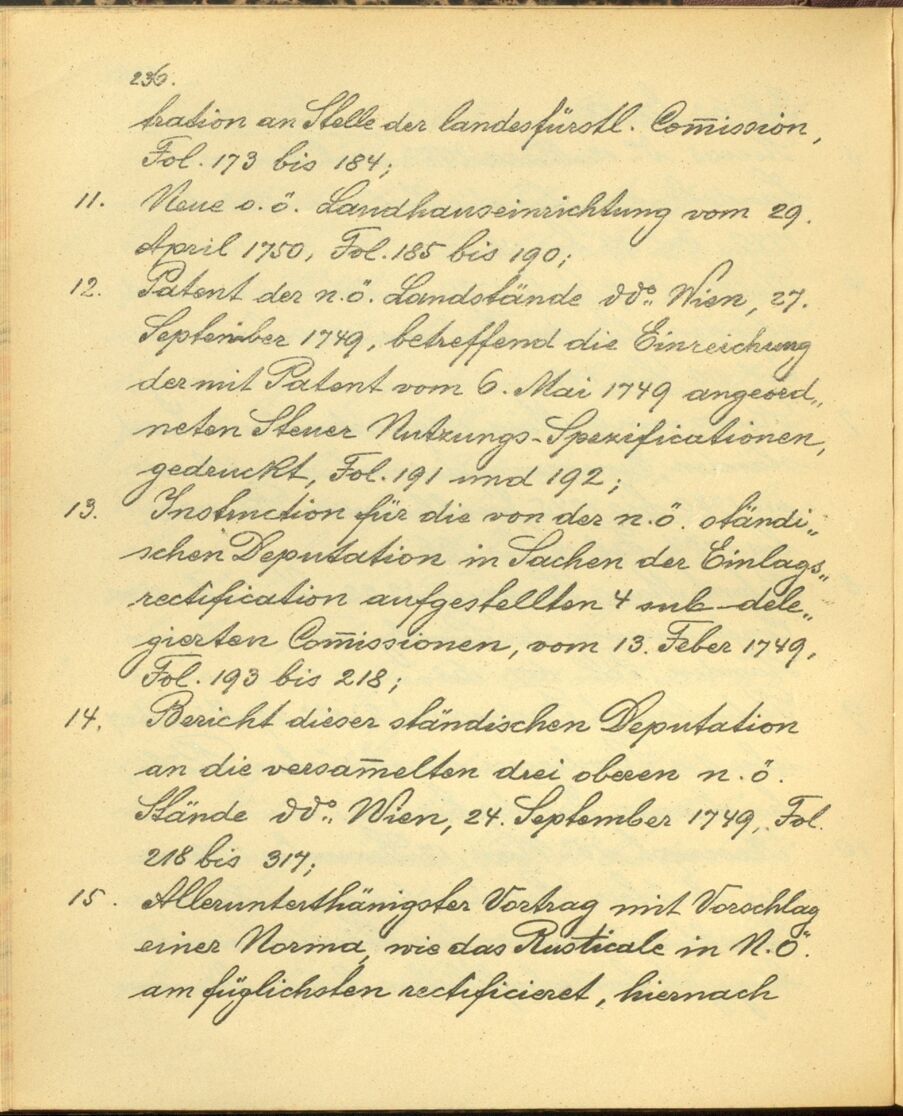 236.
tration an Stelle der landesfürstl. Com̄ission,
Fol. 173 bis 184;
11. Neue o. ö. Landhauseinrichtung vom 29.
April 1750, Fol. 185 bis 190;
12. Patent der n. ö. Landstände ddo: Wien, 27.
September 1749, betreffend die Einreichung
der mit Patent vom 6. Mai 1749 angeord„
neten Steuer Nutzungs-Spezificationen,
gedruckt, Fol. 191 und 192;
13. Instruction für die von der n. ö. ständi„
schen Deputation in Sachen der Einlags„
rectification aufgestellten 4 sub-dele„
gierten Com̄issionen, vom 13. Feber 1749,
Fol. 193 bis 218;
14. Bericht dieser ständischen Deputation
an die versam̄elten drei oberen n. ö.
Stände ddo: Wien, 24. September 1749, Fol.
218 bis 317;
15. Allerunterthänigster Vortrag mit Vorschlag
einer Norma, wie das Rusticale in N. Ö.
am füglichsten rectificieret, hiernach